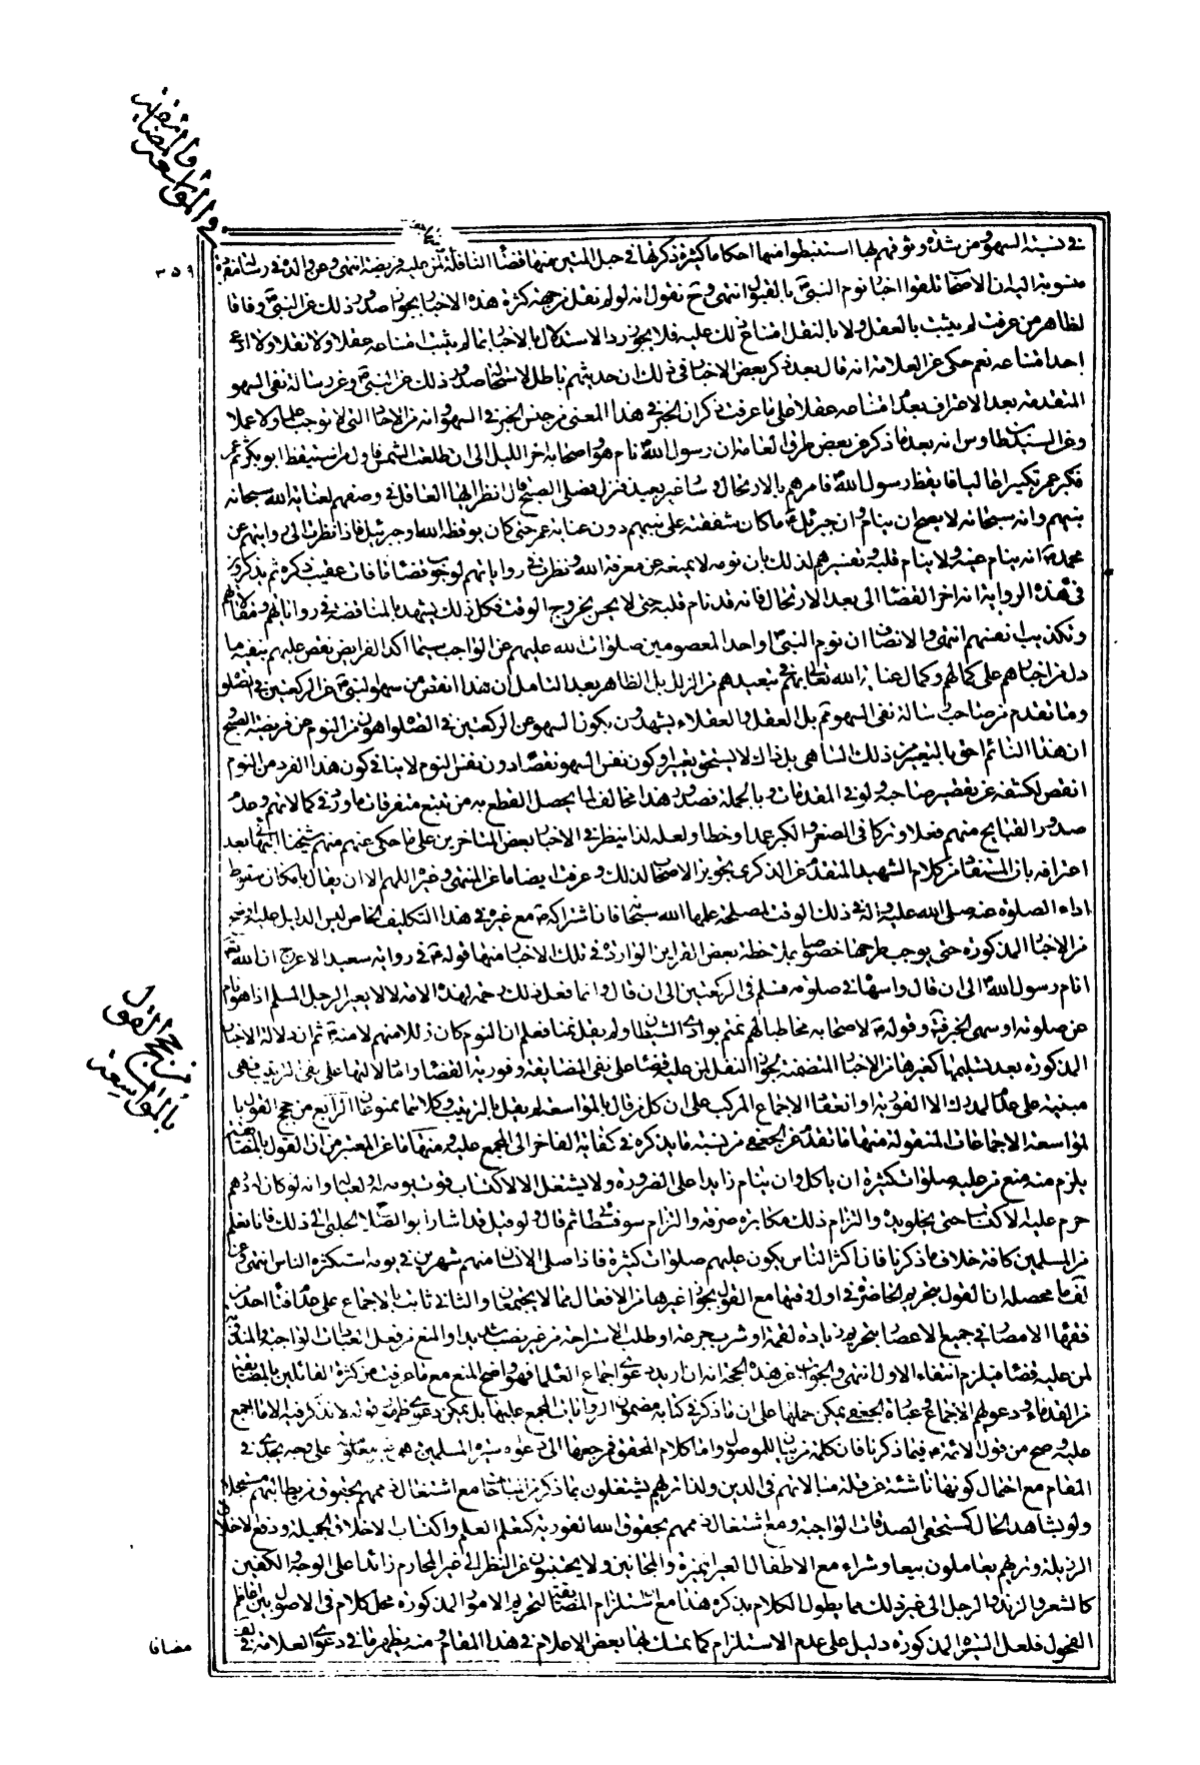 في المواسعة
والمضايقة
٣٥٩
في نسبة السهو من شذه وتوفهم لها استنبطوا منها احكاما كثيرة ذكرها في حبل المتين منها قضاء النافلة لمن عليه فريضة انتهى وعن والده في رسالة
منسوبة اليه ان الاصحاب تلقوا اخبار نوم النبي ص بالقبول انتهى وح نقول انه لو لم نقل نرجحه كثرة هذه الاخبار بجواز صدور ذلك عن النبي ص وفاقا
لظاهر من عرفت لم يثبت بالعقل ولا بالنقل امتناع ذلك عليه فلا يجوز رد الاستدلال بالاخبار بما لم يثبت امتناعه عقلا ولا نقلا ولا ادعى
احد امتناعه نعم حكى عن العلامة انه قال بعد ذكر بعض الاخبار في ذلك ان حديثهم باطل لاستحالة صدور ذلك عن النبي ص وعن رسالة نفي السهو
المتقدمة بعد الاعتراف بعدم امتناعه عقلا على ما عرفت ذكر ان الخبر في هذا المعنى من جنس الخبر في السهو وانه من الاحاد التي لا توجب علما ولا عملا
وعن السيد بن طاوس انه بعد ما ذكر عن بعض طرق العامة ان رسول الله ص نام هو واصحابه اخر الليل الى ان طلعت الشمس فاول من استيقظ ابو بكر ثم عمر
فكبر عمر تكبيرا عاليا فايقظ رسول الله ص فامرهم بالارتحال وسار غير بعيد فنزل فصلى الصبح قال انظر ايها العاقل في وصفهم لعناية الله سبحانه
بنبيهم وانه سبحانه لا يصح ان ينام وان جبرئيل ما كان شفقته على نبيهم دون عناية عمر حتى كان يوقظه الله او جبرئيل فاذا نظرت الى روايتهم عن
محمد ص انه ينام عينه ولا ينام قلبه وتفسيرهم لذلك بان نومه لا يمنعه عن معرفة الله ونظرت في رواياتهم لوجوب قضاء ما فات عقيب ذكره ثم يذكرون
في هذه الرواية انه اخر القضاء الى بعد الارتحال فانه قد نام قلبه حتى لا يحس بخروج الوقت فكل ذلك يشهد بالمناقضة في رواياتهم ومقالاتهم
وتكذيب انفسهم انتهى والانصاف ان نوم النبي ص او احد المعصومين صلوات الله عليهم عن الواجب سيما اكد الفرايض نقص عليهم ينفيه ما
دل من اخبارهم على كمالهم وكمال عناية الله تعالى بهم في تبعيدهم من الزلل بل الظاهر بعد التامل ان هذا انقص من سهو النبي ص عن الركعتين في الصلوة
وما تقدم من صاحب رسالة نفي السهو ثم بل العقل والعقلاء يشهدون بكون السهو عن الركعتين في الصلوة اهون من النوم عن فريضة الصبح
ان هذا النائم احق بالتعيير من ذلك الساهي بل ذاك لا يستحق تعييرا وكون نفس السهو نقصا دون نفس النوم لا ينافي كون هذا الفرد من النوم
انقص لكشفه عن تقصير صاحبه ولو في المقدمات وبالجملة فصدور هذا مخالف لما يحصل القطع به من تتبع متفرقات ما ورد في كمالاتهم وعدم
صدور القبايح منهم فعلا وتركا في الصغر والكبر عمدا وخطا ولعله لذا ينظر في الاخبار بعض المتاخرين على ما حكى عنهم منهم شيخنا البهائي بعد
اعترافه بان المستفاد من كلام الشهيد المتقدم عن الذكرى تجويز الاصحاب لذلك وعرفت ايضا ما عن المنتهى وغيره اللهم الا ان يقال بامكان سقوط
اداء الصلوة عنه صلى الله عليه واله في ذلك الوقت لمصلحة علمها الله سبحانه فان اشتراكه ص مع غيره في هذا التكليف الخاص ليس الدليل عليه اوضح
من الاخبار المذكورة حتى يوجب طرحها خصوصا بملاحظة بعض القراين الواردة في تلك الاخبار منها قوله ع في رواية سعيد الاعرج ان الله تعالى
انام رسول الله ص الى ان قال واسهاه في صلوته فسلم في الركعتين الى ان قال وانما فعل ذلك رحمة لهذه الامة لئلا يعير الرجل المسلم اذا هو نام
عن صلوته او سهى الخبر وقوله ص لاصحابه مخاطبا لهم نمتم بوادي الشيطان ولم يقل نمنا فعلم ان النوم كان زللا منهم لا منه ص ثم ان دلالة الاخبار
المذكورة بعد تسليمها كغيرها من الاخبار المتضمنة بجواز النفل لمن عليه قضاء على نفي المضايقة وفورية القضاء واما دلالتها على نفي الترتيب فهي
مبنية على عدم المدرك له الا الفورية او انعقاد الاجماع المركب على ان كل من قال بالمواسعة لم يقل بالترتيب وكلاهما ممنوعان الرابع من حجج القول با
لمواسعة الاجماعات المنقولة منها ما تقدم عن الجعفي من نسبة ما يذكره في كتابه الفاخر الى المجمع عليه ومنها ما عن المعتبر من ان القول بالمضايقة
يلزم منه منع من عليه صلوات كثيرة ان ياكل وان ينام زايدا على الضرورة ولا يشتغل الا لاكتساب قوت يومه له ولعياله وانه لو كان له درهم
حرم عليه الاكتساب حتى يخلو يده والتزام ذلك مكابرة صرفة والتزام سوفسطائي ثم قال ولو قيل قد اشار ابو الصلاح الحلبي الى ذلك قلنا نعلم
من المسلمين كافة خلاف ما ذكر فان اكثر الناس يكون عليهم صلوات كثيرة فاذا صلى الانسان منهم شهرين في يومه استكثره الناس انتهى وعن
محصله ان القول بتحريم الحاضرة في اول وقتها مع القول بجواز غيرها من الافعال مما لا يجتمعان والثاني ثابت بالاجماع على عدم افتاء احد من
فقهاء الامصار في جميع الاعصار بتحريم زيادة لقمة او شرب جرعة او طلب الاستراحة من غير نصب شديد او المنع من فعل العبادات الواجبة والمندوبة
لمن عليه قضاء فيلزم انتفاء الاول انتهى والجواب عن هذه الحجة انه ان اريد دعوى اجماع العلماء فهو واضح المنع مع ما عرفت من كثرة القائلين بالمضايقة
من القدماء ودعويهم الاجماع وعبارة الجعفي يمكن حملها على ان ما ذكر في كتابه مضمون الروايات المجمع عليها بل يمكن دعوى ظهور قوله لا نذكر فيه الا ما اجمع
عليه وصح من قول الائمة ع فيما ذكرنا فان كلمة من بيان للموصول واما كلام المحقق فمرجعها الى دعواه سيرة المسلمين على وجه يجدي في
المقام مع احتمال كونها ناشئة عن قلة مبالاتهم في الدين ولذا تريهم يشتغلون بما ذكر من المباحات مع اشتغال ذممهم بحقوق من يطالبهم مستعجلا
ولو بشاهد الحال كمستحقي الصدقات الواجبة ومع اشتغال ذممهم بحقوق الله الفورية كتعلم العلم واكتساب الاخلاق الجميلة ودفع الاخلاق
الرذيلة وتريهم يعاملون بيعا وشراء مع الاطفال الغير المميزة والمجانين ولا يجتنبون عن النظر الى غير المحارم زائدا على الوجه والكفين
كالشعر والزند والرجل الى غير ذلك مما يطول الكلام بذكره هذا مع ان استلزام المضايقة لتحريم الامور المذكورة محل كلام في الاصول بين اعاظم
الفحول فلعل السيرة المذكورة دليل على عدم الاستلزام كما تمسك بها بعض الاعلام في هذا المقام ومنه يظهر ما في دعوى العلامة في
من حجج القول
بالمواسعة
مضافا